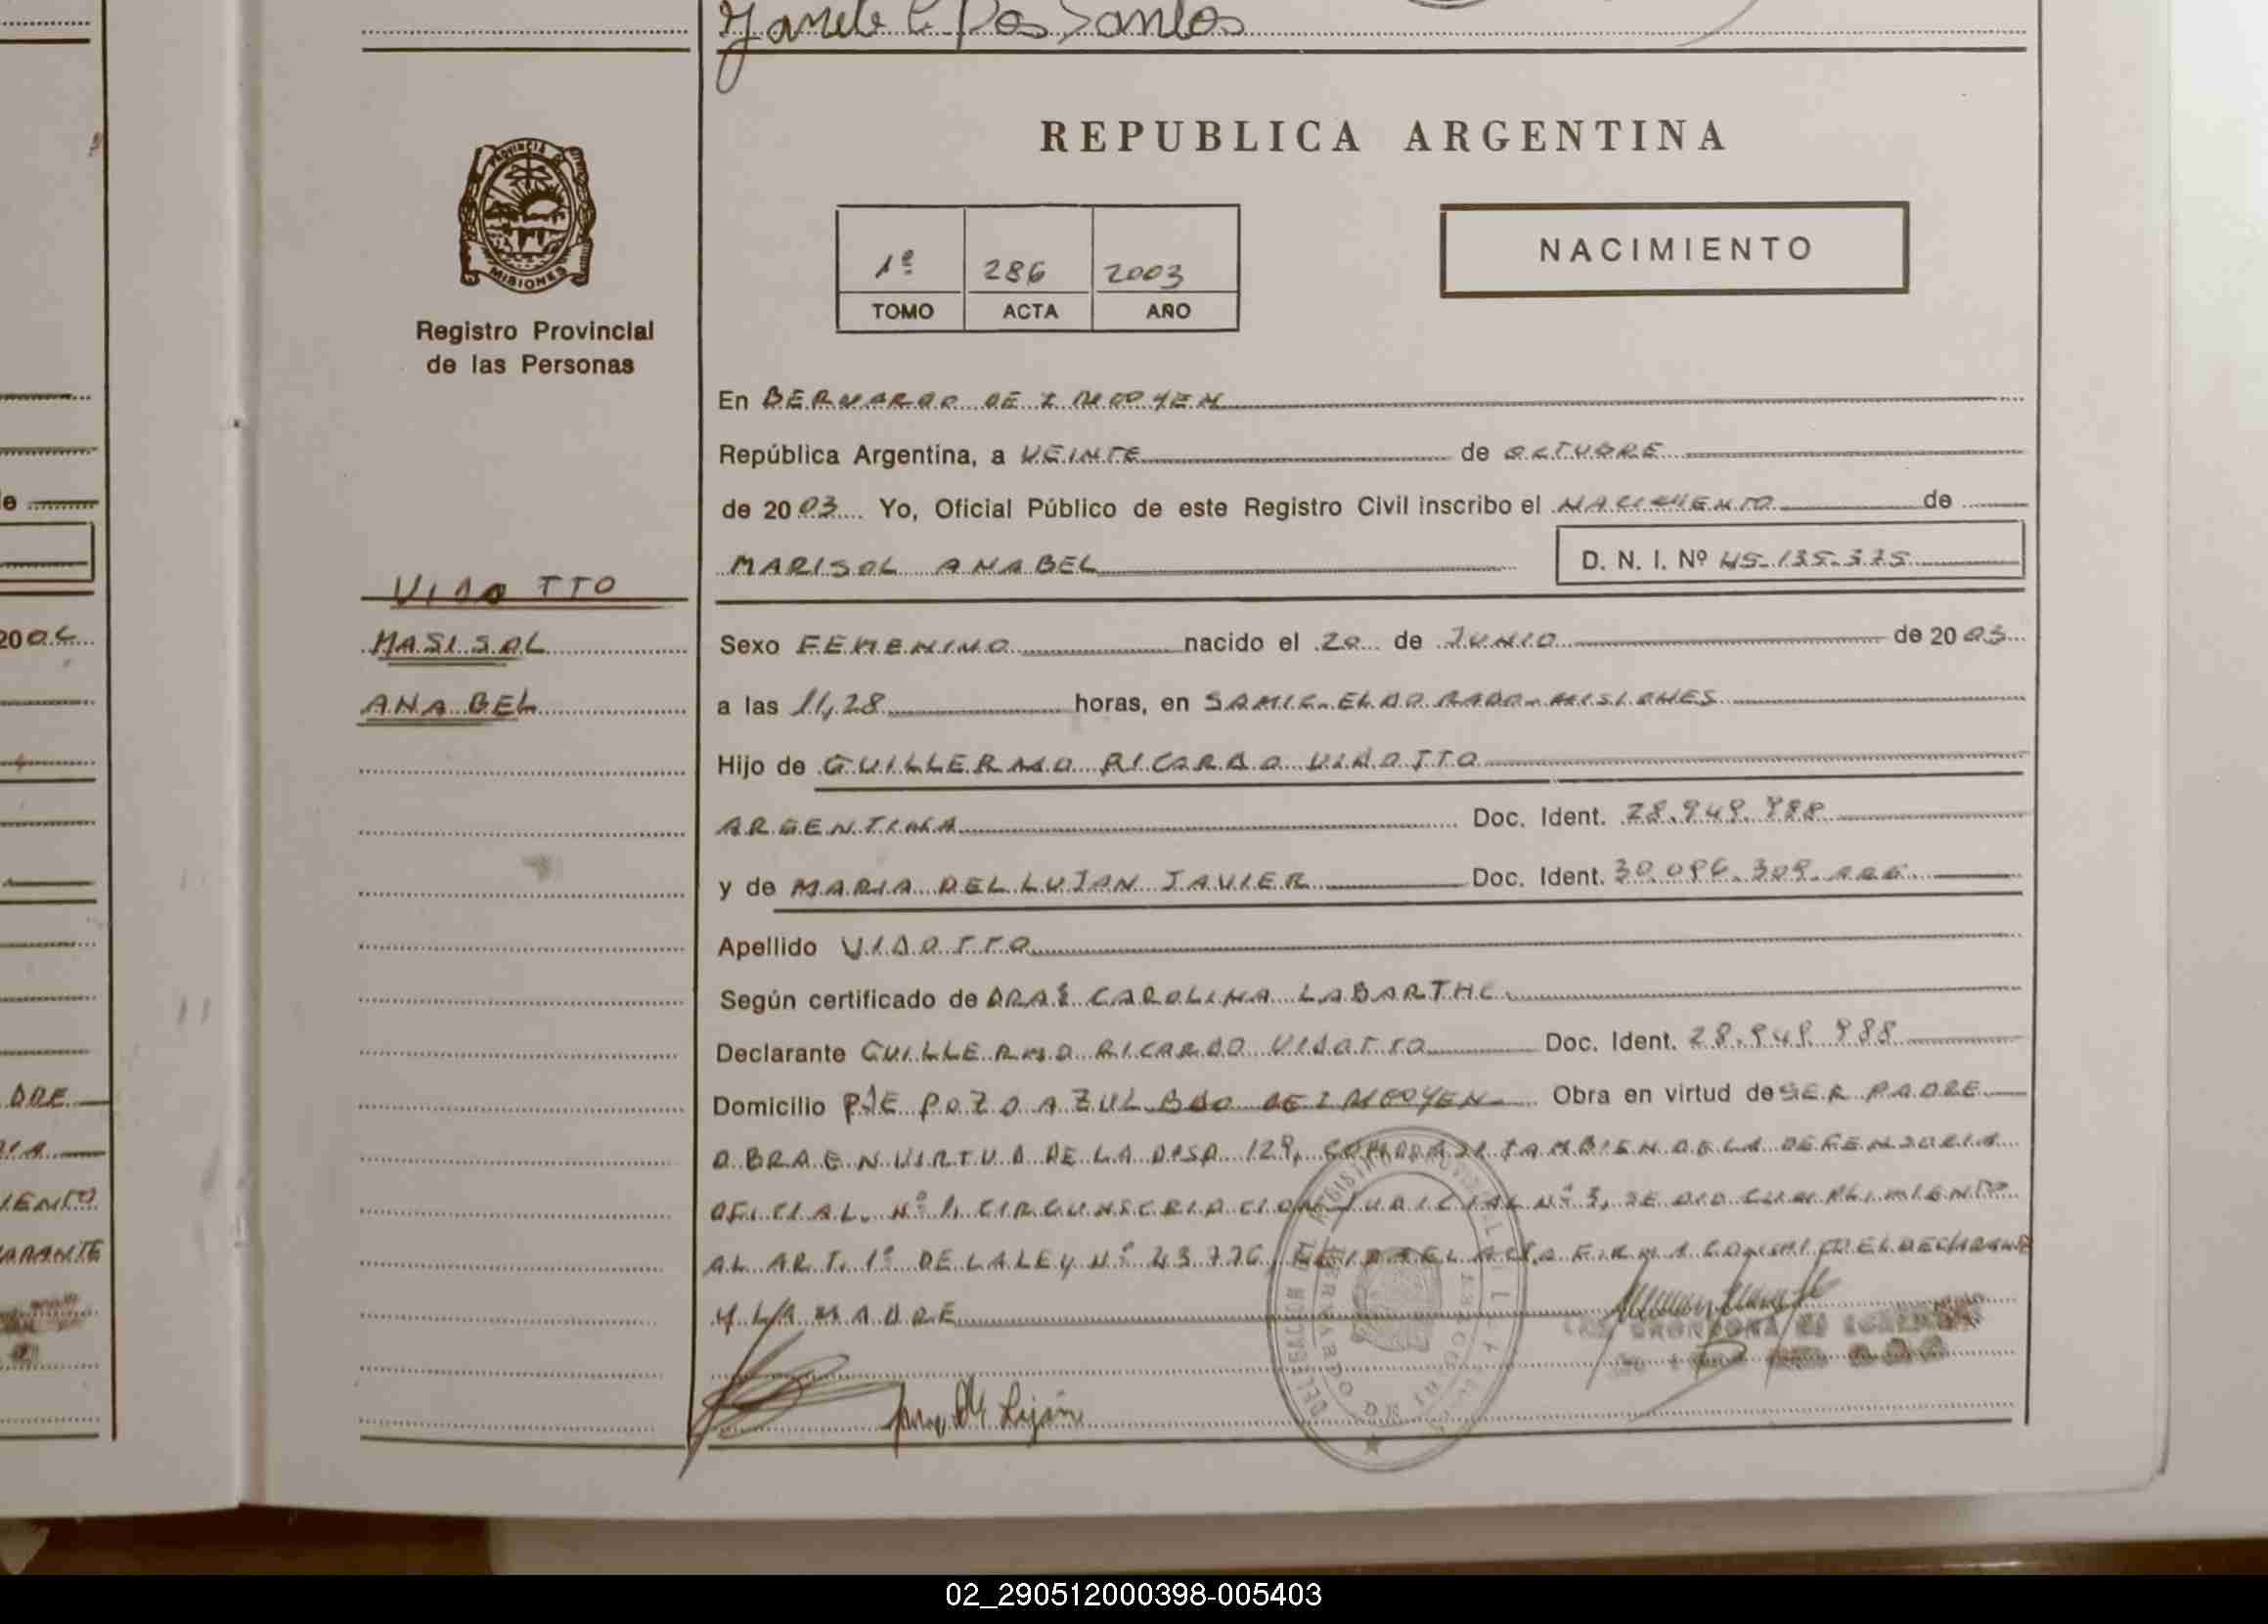 Janete C Dos Santos
REPUBLICA ARGENTINA
PROVINCIA DE
MISIONES
Registro Provincial
de las Personas
1º 286 2003
TOMO ACTA AÑO
NACIMIENTO
En BERNARDO DE IRIGOYEN
República Argentina, a VEINTE de OCTUBRE
de 2003 Yo, Oficial Público de este Registro Civil inscribo el NACIMIENTO de
MARISOL ANABEL D. N. I. Nº 45.135.375
VIDOTTO
MARISOL
ANABEL
Sexo FEMENINO nacido el 20 de JUNIO de 2003
a las 11,28 horas, en SAMIC-ELDORADO-MISIONES
Hijo de GUILLERMO RICARDO VIDOTTO
ARGENTINA Doc. Ident. 28.949.988
y de MARIA DEL LUJAN JAVIER Doc. Ident. 30.096.309
Apellido VIDOTTO
Según certificado de DRA CAROLINA LABARTHE
Declarante GUILLERMO RICARDO VIDOTTO Doc. Ident. 28.949.988
Domicilio PJE POZO AZUL BDO DE IRIGOYEN Obra en virtud de SER PADRE
OBRA EN VIRTUD DE LA DISP. 129, TAMBIEN DE LA DEFENSORIA
OFICIAL Nº 1, CIRCUNSCRIPCION JUDICIAL Nº 3, SE DIO CUMPLIMIENTO
AL ART. 1º DE LA LEY Nº 23.776, LEIDA EL ACTA FIRMA CONMIGO EL DECLARANTE
Y LA MADRE
2002
DRE
IENTO
ARANTE
02_290512000398-005403